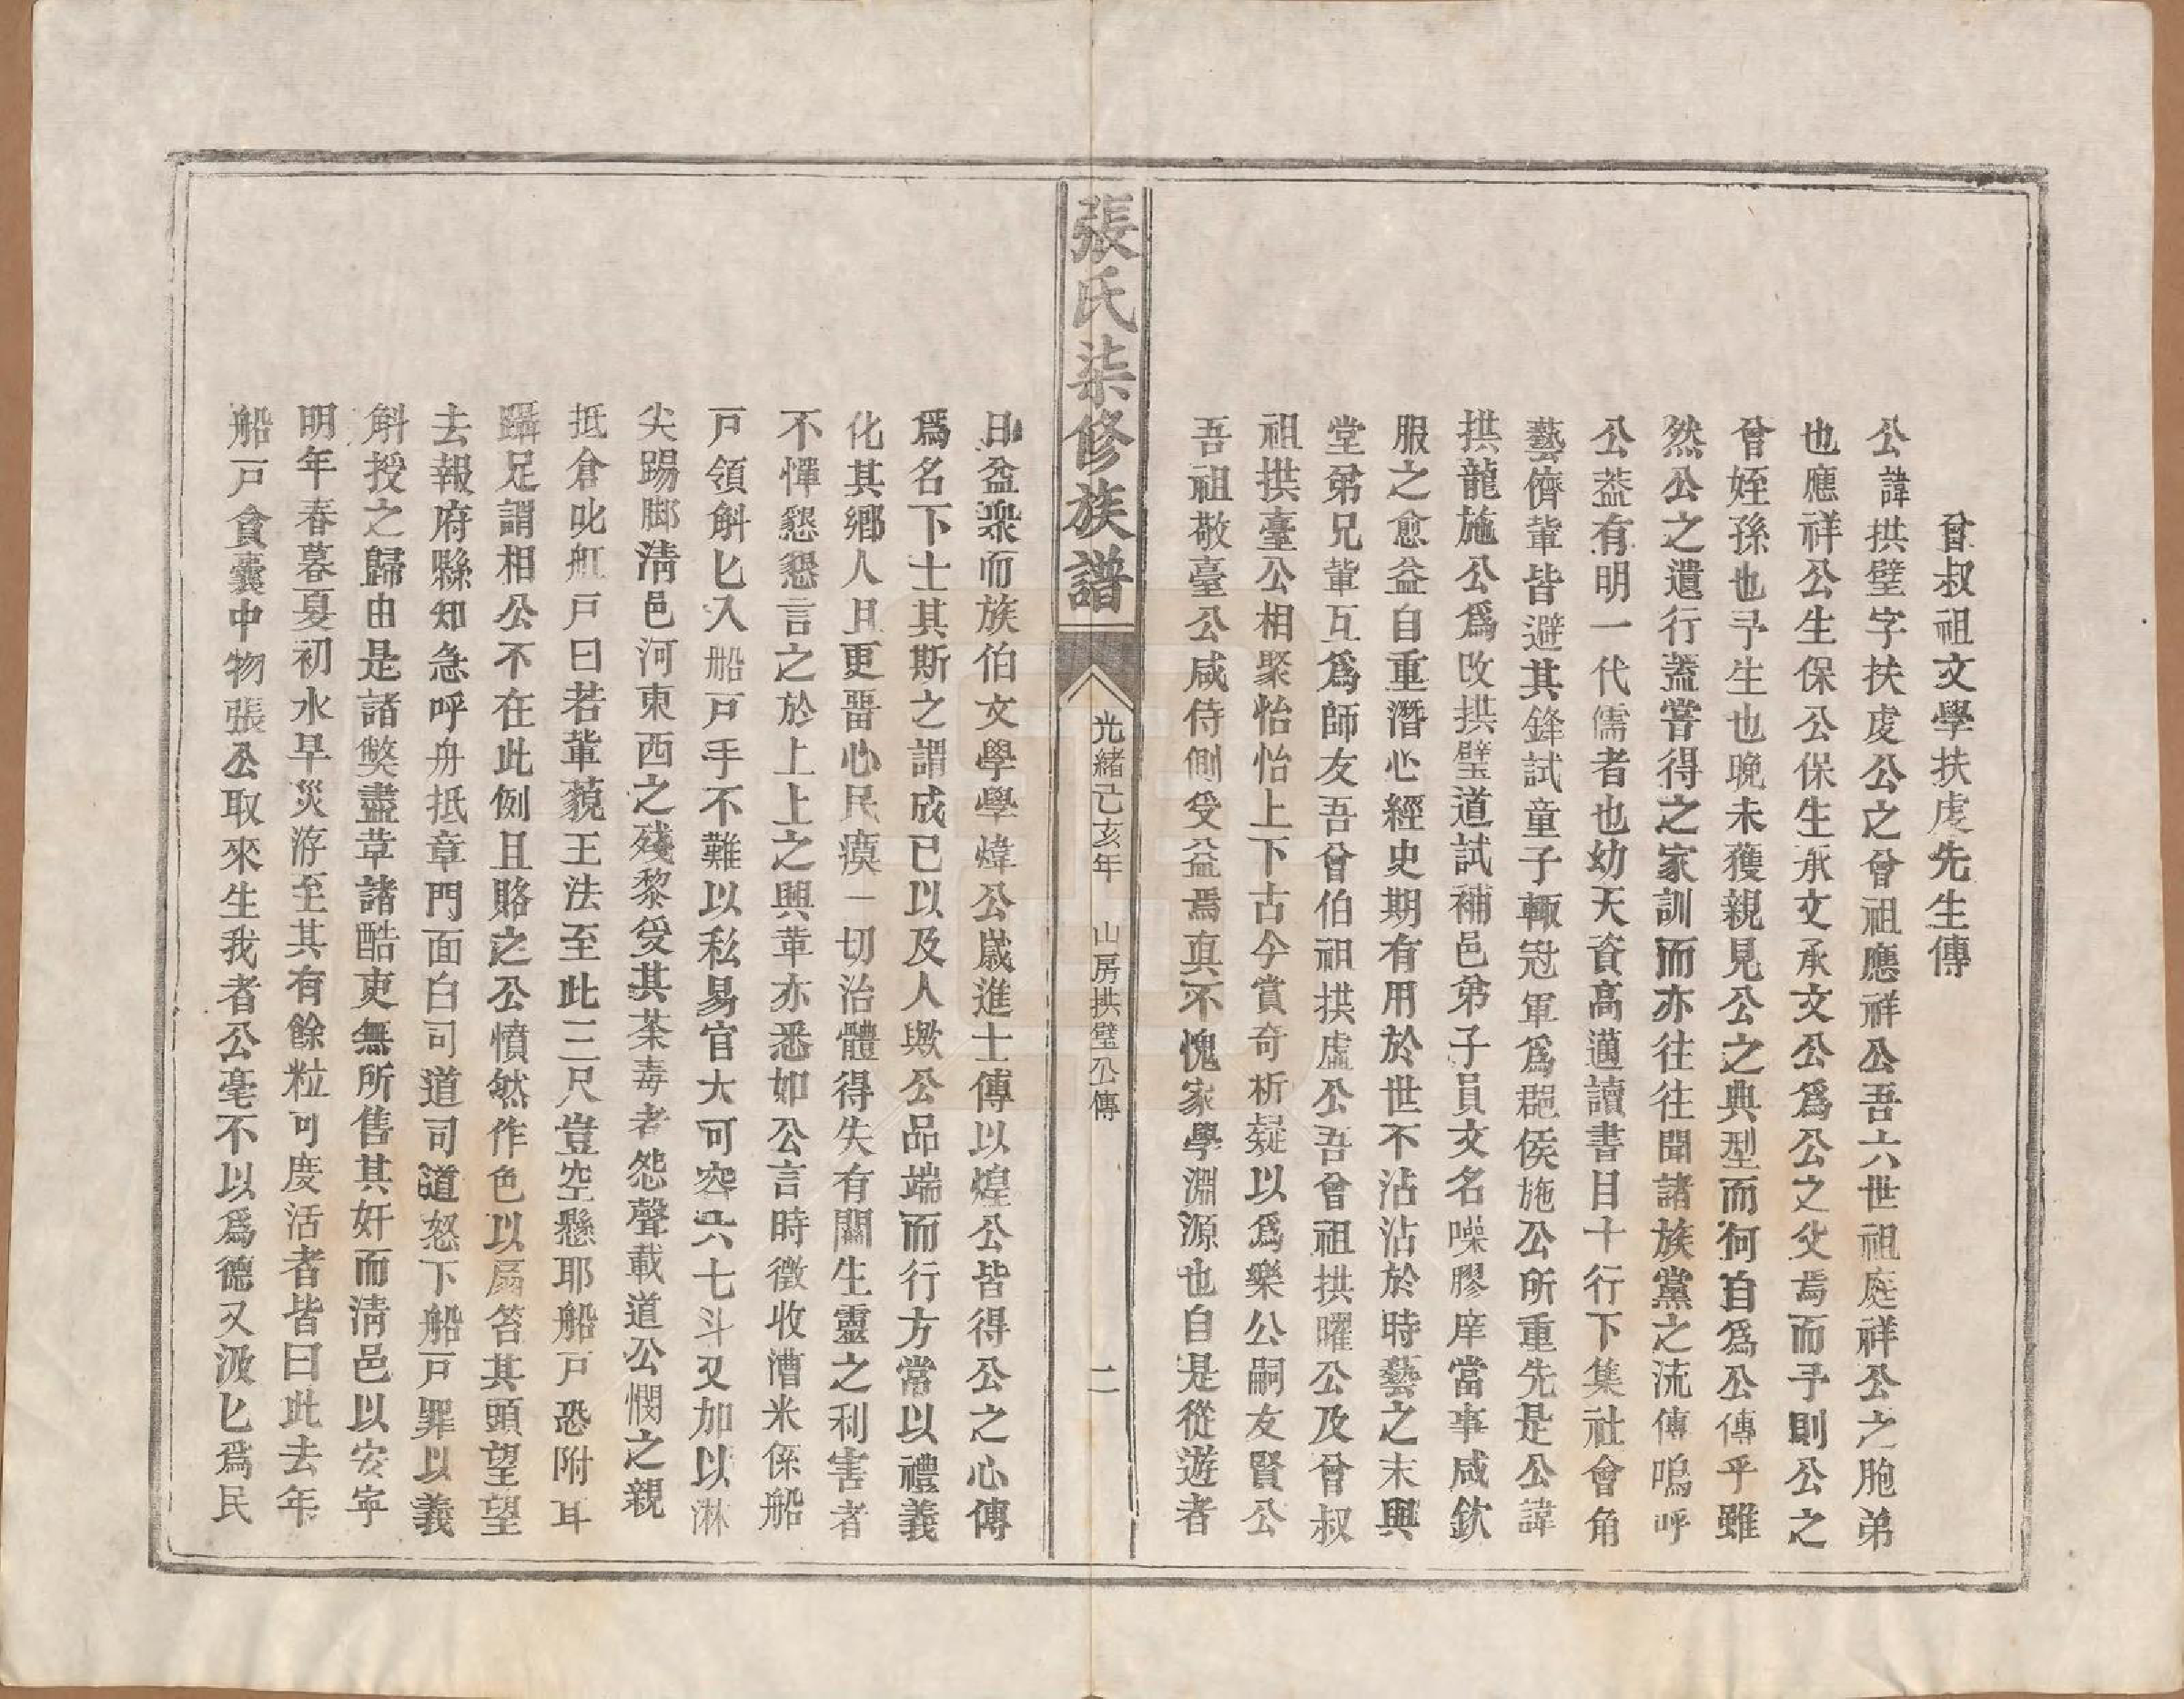 曾叔祖文學扶虔先生傳
公諱拱壁字扶虔公之曾祖應祥公吾六世祖庭祥公之胞弟
也應祥公生保公保生承文承文公為公之父焉而予則公之
曾姪孫也予生也晚未獲親見公之典型而何自為公傳乎雖
然公之遺行蓋嘗得之家訓而亦往往聞諸族黨之流傳嗚呼
公葢有明一代儒者也幼天資高邁讀書目十行下集社會角
藝儕軰皆避其鋒試童子輙冠軍為邑侯施公所重先是公諱
拱龍施公為改拱璧道試補邑弟子員文名噪膠庠當事咸欽
服之愈益自重潛心經史期有用於世不沾沾於時藝之末與
堂弟兄軰互為師友吾曾伯祖拱虛公吾曾祖拱曜公及曾叔
祖拱臺公相聚怡怡上下古今賞奇析疑以為樂公嗣友賢公
吾祖敬臺公咸侍側受益焉真不愧家學淵源也自是從遊者
張氏柒修族譜
光緒己亥年 山房拱璧公傳 二
日益衆而族伯文學學煒公歲進士傳以煌公皆得公之心傳
爲名下士其斯之謂成已以及人歟公品端而行方常以禮義
化其鄉人且更畱心民瘼一切治體得失有關生靈之利害者
不憚懇懇言之於上上之興革亦悉如公言時徵收漕米係船
戸領斛匕入船戸手不難以私易官大可容六七斗又加以淋
尖踢脚淸邑河東西之殘黎受其荼毒者怨聲載道公憫之親
抵倉叱舡戸曰若軰藐王法至此三尺豈空懸耶船戸恐附耳
躡足謂相公不在此例且賂之公憤然作色以扇笞其頭望望
去報府縣知急呼舟抵章門面白司道司道怒下船戸罪以義
斛授之歸由是諸獘盡革諸酷吏無所售其奸而淸邑以安宇
明年春暮夏初水旱災游至其有餘粒可度活者皆曰此去年
船戸貪囊中物張公取來生我者公毫不以爲德又汲匕爲民